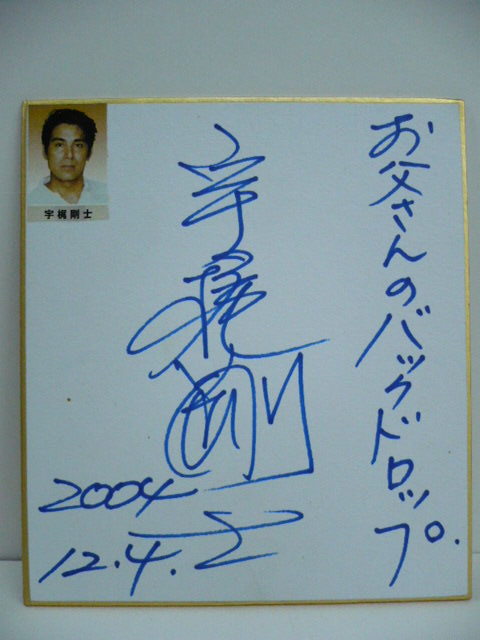 お父さんのバックドロップ.
宇梶剛士
2004
12.4.
宇梶剛士